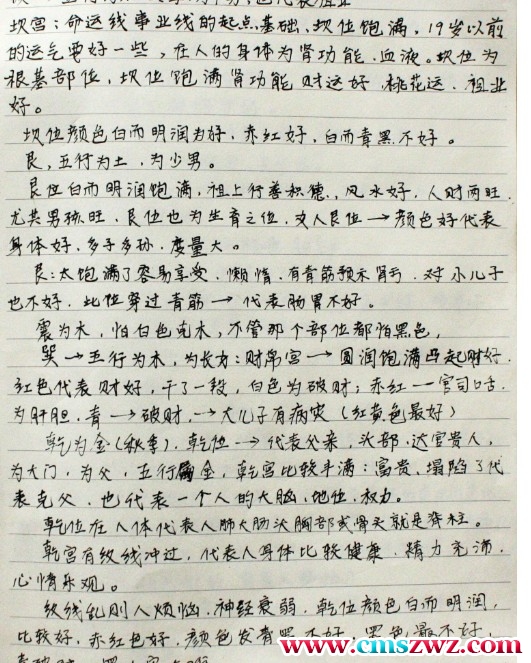 坎宫：命运线事业线的起点基础、坎位饱满，19岁以前
的运气要好一些，在人的身体为肾功能、血液。坎位为
根基部位，坎位饱满肾功能财运好，桃花运，祖业
好。
坎位颜色白而明润为好，赤红好，白而青黑不好。
艮，五行为土，为少男。
艮位白而明润饱满，祖上行善积德，风水好，人财两旺
尤其男孩旺，艮位也为生育之位，女人艮位→颜色好代表
身体好，多子多孙，度量大。
艮：太饱满了容易享受，懒惰，有青筋预示肾亏，对小儿子
也不好，此位穿过青筋→代表肠胃不好。
震为木，怕白色克木，不管那个部位都怕黑色，
巽→五行为木，为长女：财帛宫→圆润饱满凸起财好
红色代表财好，干了一致，白色为破财；赤红一官司口舌
为肝胆，青→破财，→大儿子有病灾（红黄色最好）
乾为金（秋季），乾位→代表父亲，头部，达官贵人，
为大门，为父，五行属金，乾宫比较丰满：富贵、塌陷了代
表克父，也代表一个人的大脑，地位，权力。
乾位在人体代表人肺大肠头胸部或骨头就是脊柱。
乾宫有纹线冲过，代表人身体比较健康，精力充沛，
心情乐观。
纹线乱则人烦恼，神经衰弱，乾位颜色白而明润，
比较好，赤红色好，颜色发青黑不好，黑色最不好，
www.cmszwz.com